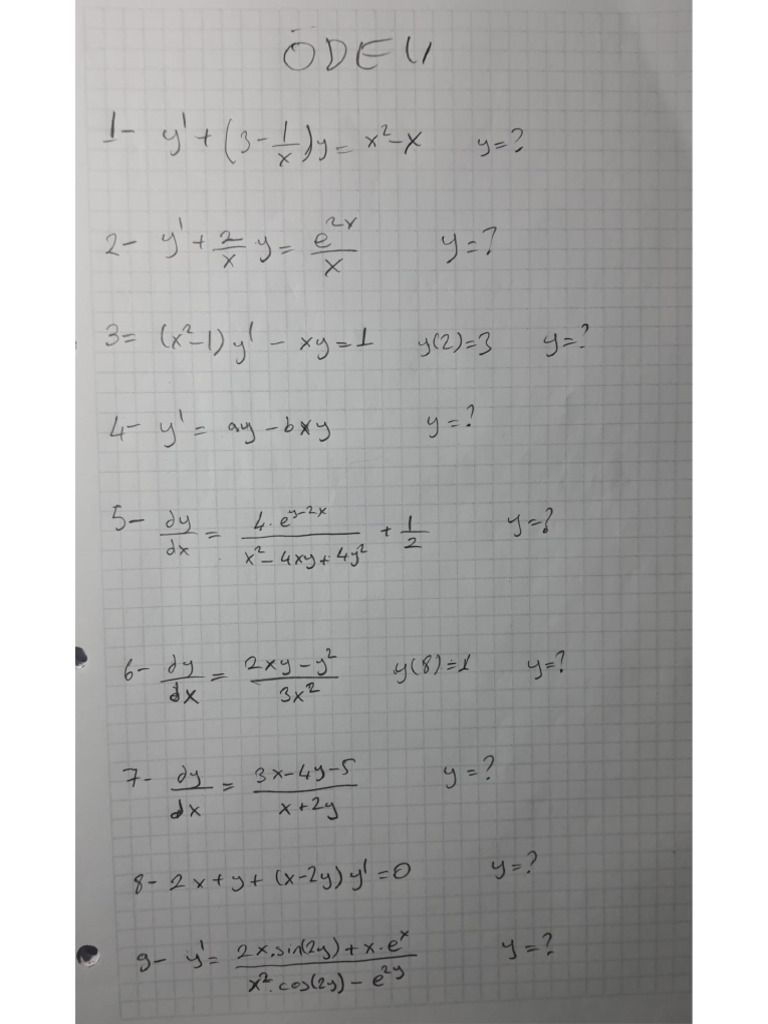 ÖDEV
1- y' + (3 - 1/x)y = x² - x y = ?
2- y' + 2/x y = e^(2x)/x y = ?
3= (x² - 1)y' - xy = 1 y(2) = 3 y = ?
4- y' = ay - bxy y = ?
5- dy/dx = 4·e^(y-2x)/(x² - 4xy + 4y²) + 1/2 y = ?
6- dy/dx = (2xy - y²)/(3x²) y(8) = 1 y = ?
7- dy/dx = (3x - 4y - 5)/(x + 2y) y = ?
8- 2x + y + (x - 2y)y' = 0 y = ?
9- y' = (2x·sin(2y) + x·e^x)/(x²·cos(2y) - e^(2y)) y = ?